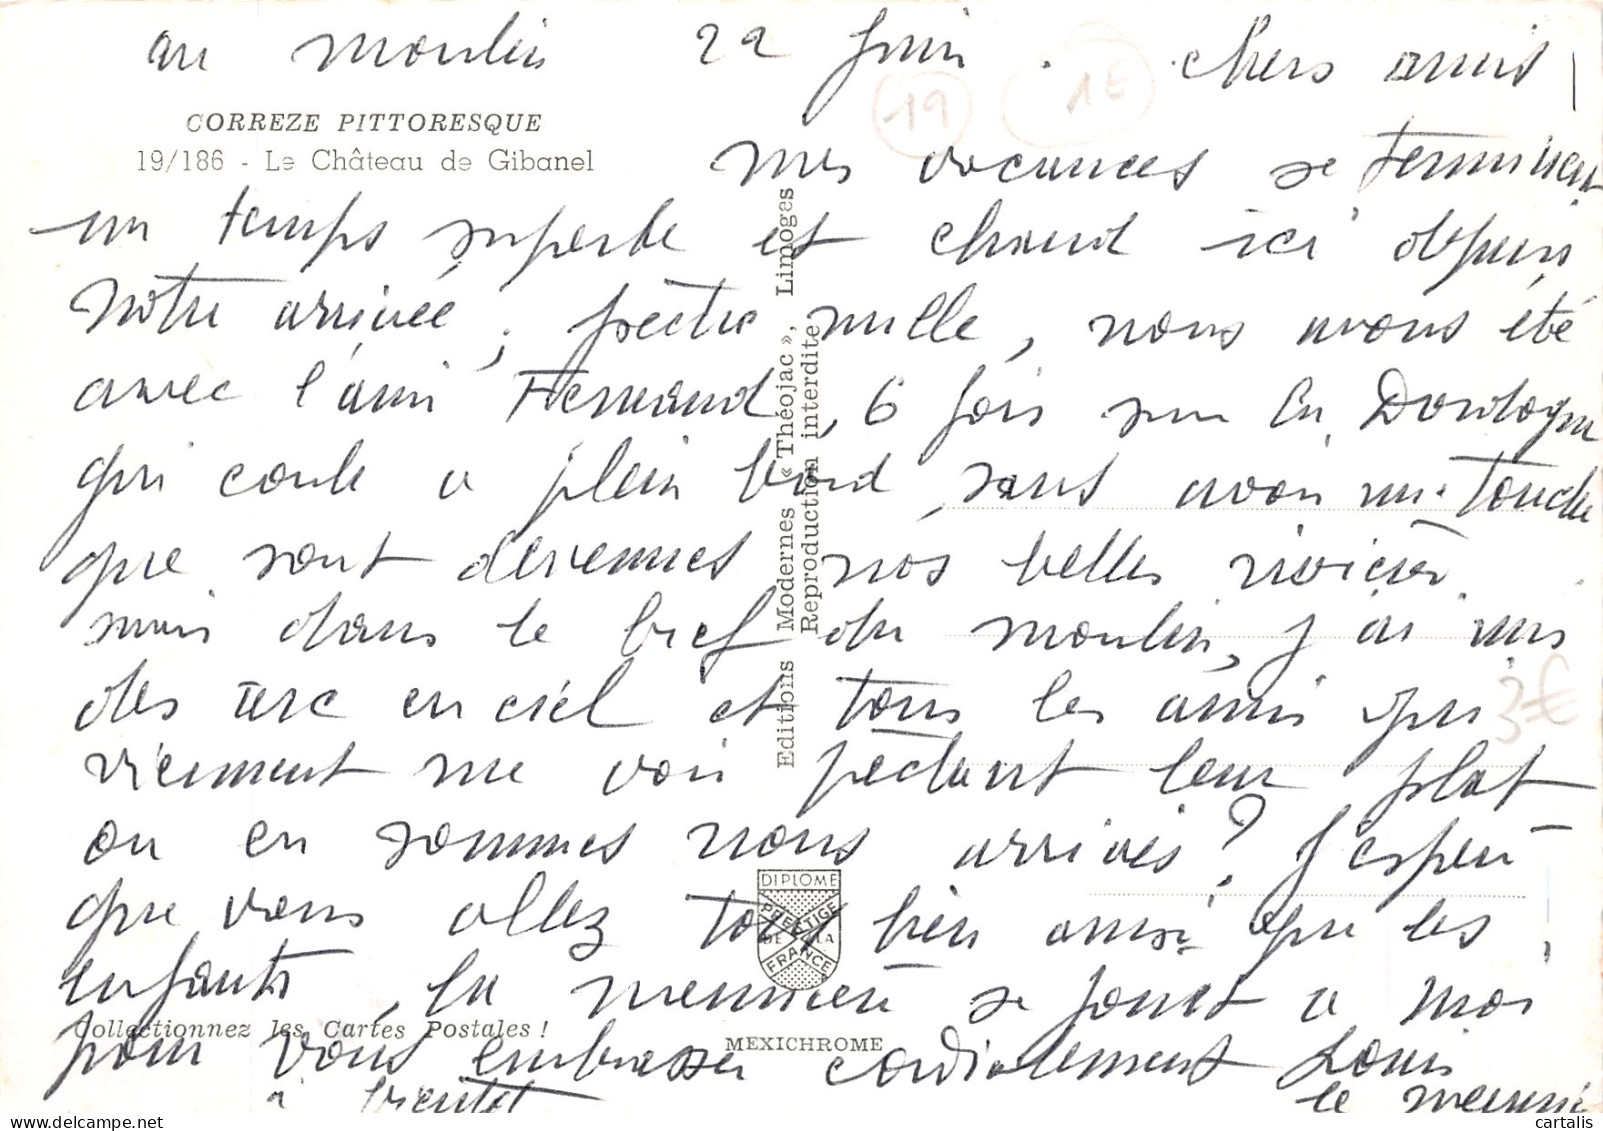 au moulin 22 juin . chers amis
CORREZE PITTORESQUE
19/186 - Le Château de Gibanel
19
1E
mes vacances se terminent
un temps superbe et chaud ici depuis
notre arrivée, pêche nulle, nous avons été
avec l'ami Fernand, 6 fois sur la Dordogne
qui coule a plein bord, sans avoir une touche
que sont devenues nos belles rivières
mais dans le bief du moulin, j'ai mis
des arc en ciel et tous les amis qui
viennent me voir pêchent leur plat
ou en sommes nous arrivés ? J'espère
que vous allez tous bien ainsi que les
enfants, la meunière se joint a moi
pour vous embrasser cordialement Louis
à bientôt le meunier
Editions Modernes « Théojac », Limoges
Reproduction interdite
3€
DIPLOME
PRESTIGE
DE LA
FRANCE
Collectionnez les Cartes Postales !
MEXICHROME
delcampe.net
cartalis